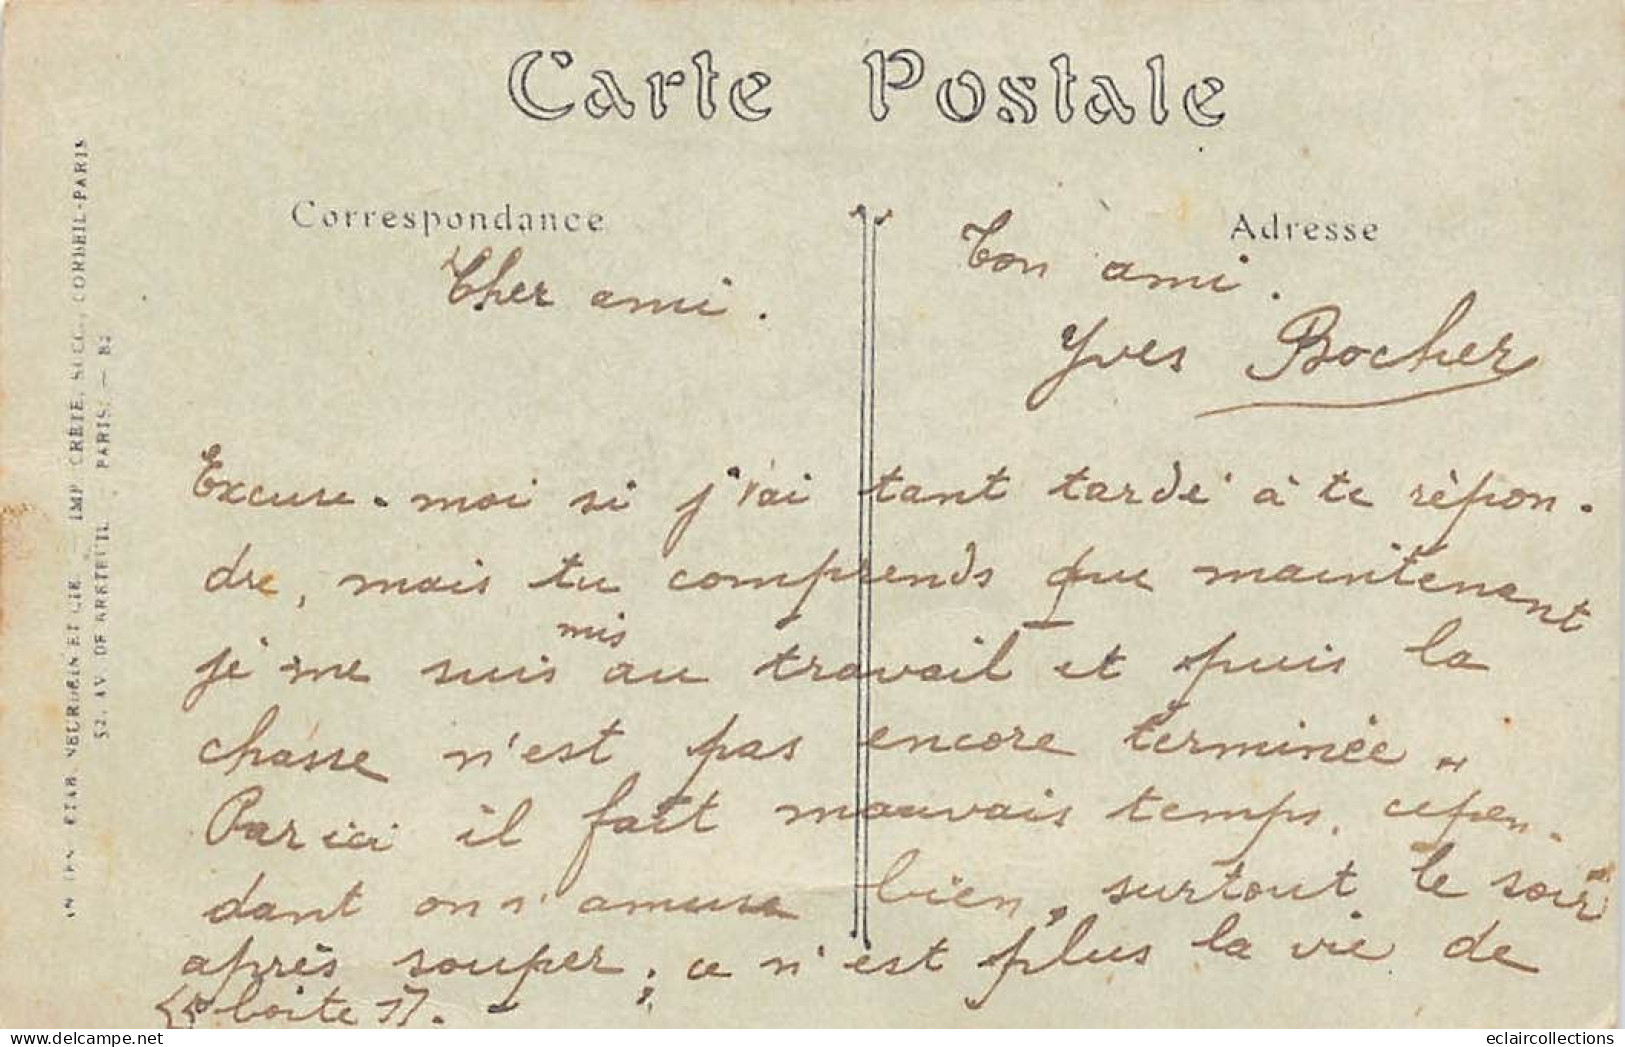 Carte Postale
Correspondance
Adresse
IMP CRÉTÉ, SUCC., CORBEIL-PARIS
52, AV. DE BRETEUIL - PARIS. — B2
Cher ami.
Ton ami.
Yves Bocher
Excuse-moi si j'ai tant tardé à te répon-
dre, mais tu comprends que maintenant
mis
je me suis au travail et puis la
chasse n'est pas encore terminée
Par ici il fait mauvais temps, cepen-
dant on s'amuse bien, surtout le soir
après souper; ce n'est plus la vie de
boite 17.
eclaircollections